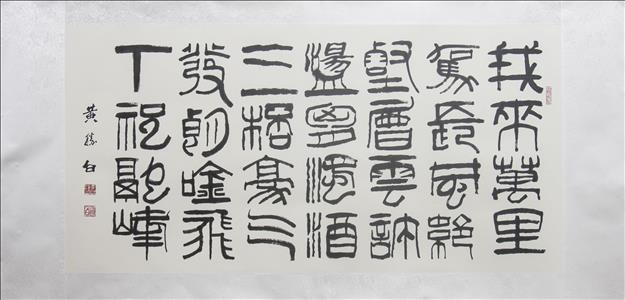 我來萬里
駕長風絕
壑層雲許
盪胸濁酒
三桮豪气
發朗唫飛
下祝融峰
黃勝白